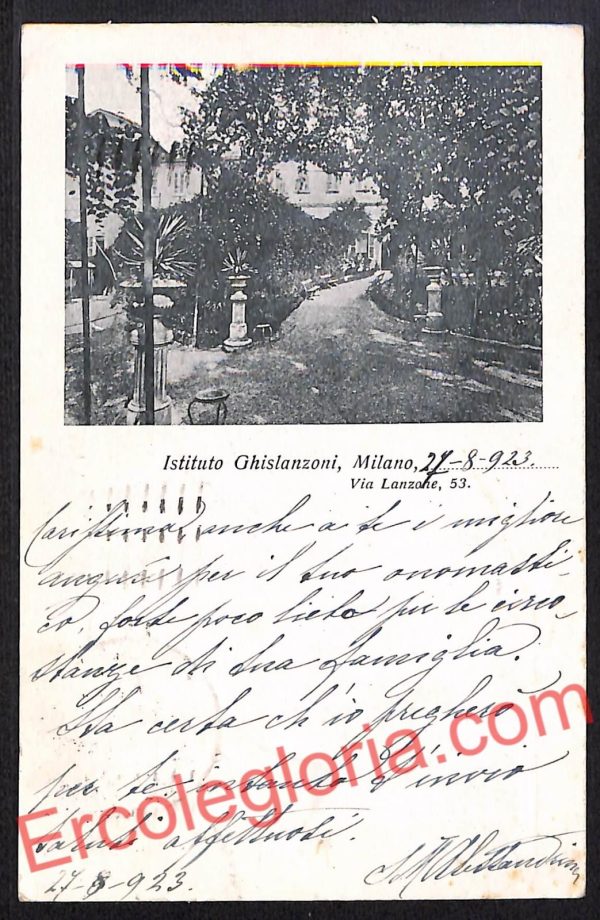 Istituto Ghislanzoni, Milano, 27-8-923.
Via Lanzone, 53.
Carissima, anche a te i migliori
auguri per il tuo onomasti-
co, forse poco lieto per le circo-
stanze di tua famiglia.
Sta certa ch'io pregherò
per te, intanto t'invio
saluti affettuosi.
27-8-923.
Ercolegloria.com